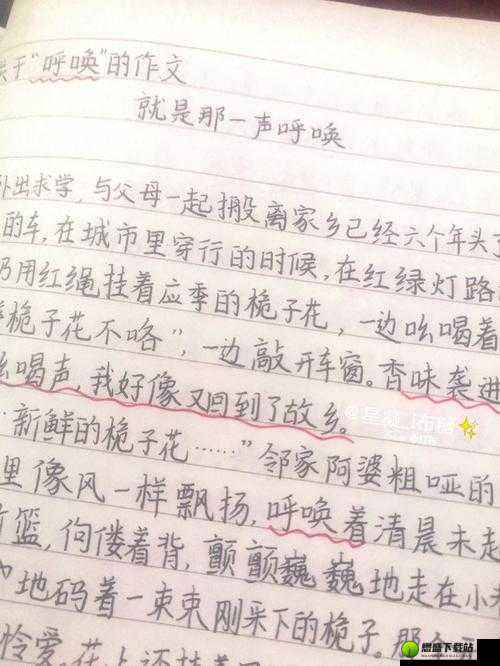 关于“呼唤”的作文
就是那一声呼唤
外出求学，与父母一起搬离家乡已经六个年头了
的车，在城市里穿行的时候，在红绿灯路
仍用红绳挂着应季的栀子花，一边吆喝着
栀子花不咯”，一边敲开车窗。香味袭进
吆喝声，我好像又回到了故乡。
新鲜的栀子花……”邻家阿婆粗哑的
里像风一样飘扬，呼唤着清晨未起
篮，佝偻着背，颤颤巍巍地走在小
地码着一束束刚采下的栀子。那
怜爱。花上还挂着
懋盛下载站